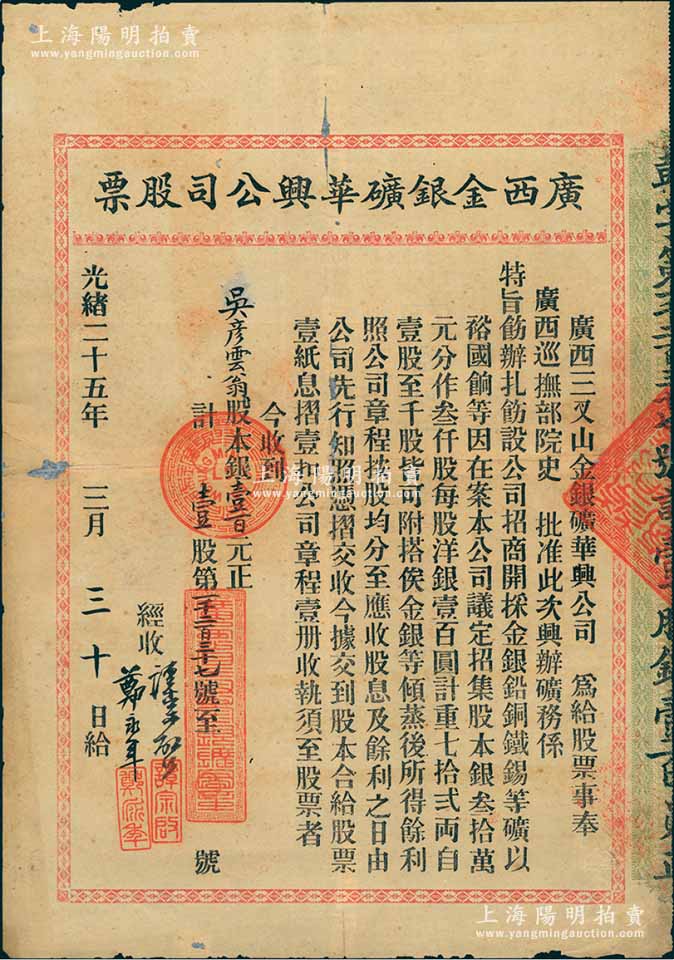 上海陽明拍賣
www.yangmingauction.com
上海陽明拍賣
www.yangmingauction.com
廣西金銀礦華興公司股票
廣西三叉山金銀礦華興公司 爲給股票事奉
廣西巡撫部院史 批准此次興辦礦務係
特旨飭辦扎飭設公司招商開採金銀鉛銅鐵錫等礦以
裕國餉等因在案本公司議定招集股本銀叁拾萬
元分作叁仟股每股洋銀壹百圓計重七拾弍両自
壹股至千股皆可附搭俟金銀等傾蒸後所得餘利
照公司章程按股均分至應收股息及餘利之日由
公司先行知照憑摺交收今據交到股本合給股票
壹紙息摺壹扣公司章程壹册收執須至股票者
今收到
吳彦雲翁股本銀壹百元正
計 壹 股第一千二百三十七號至 號
經收
鄭永年
光緒二十五年 三月 三十日給
上海陽明拍賣
www.yangmingauction.com
上海陽明拍賣
www.yangmingauction.com